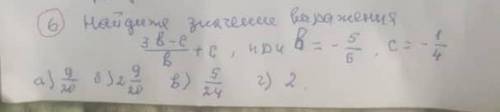 ⑥ Найдите значение выражения
$\frac{3в-c}{в}$ + c, при в = $-\frac{5}{6}$, c = $-\frac{1}{4}$
а) $\frac{9}{20}$ б) 2$\frac{9}{20}$ в) $\frac{5}{24}$ г) 2.